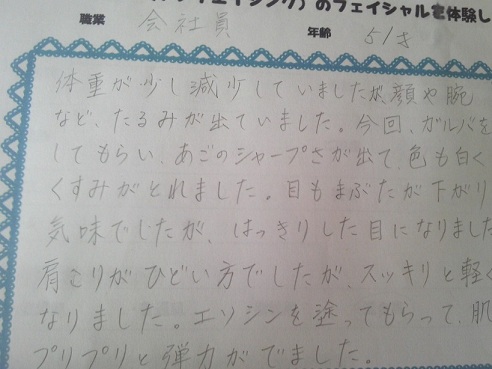 のフェイシャルを体験し
職業 会社員 年齢 51才
体重が少し減少していましたが、顔や腕
など、たるみが出ていました。今回、ガルバを
してもらい、あごのシャープさが出て、色も白く
くすみがとれました。目もまぶたが下がり
気味でしたが、はっきりした目になりました
肩こりがひどい方でしたが、スッキリと軽く
なりました。エソシンを塗ってもらって、肌
プリプリと弾力がでました。